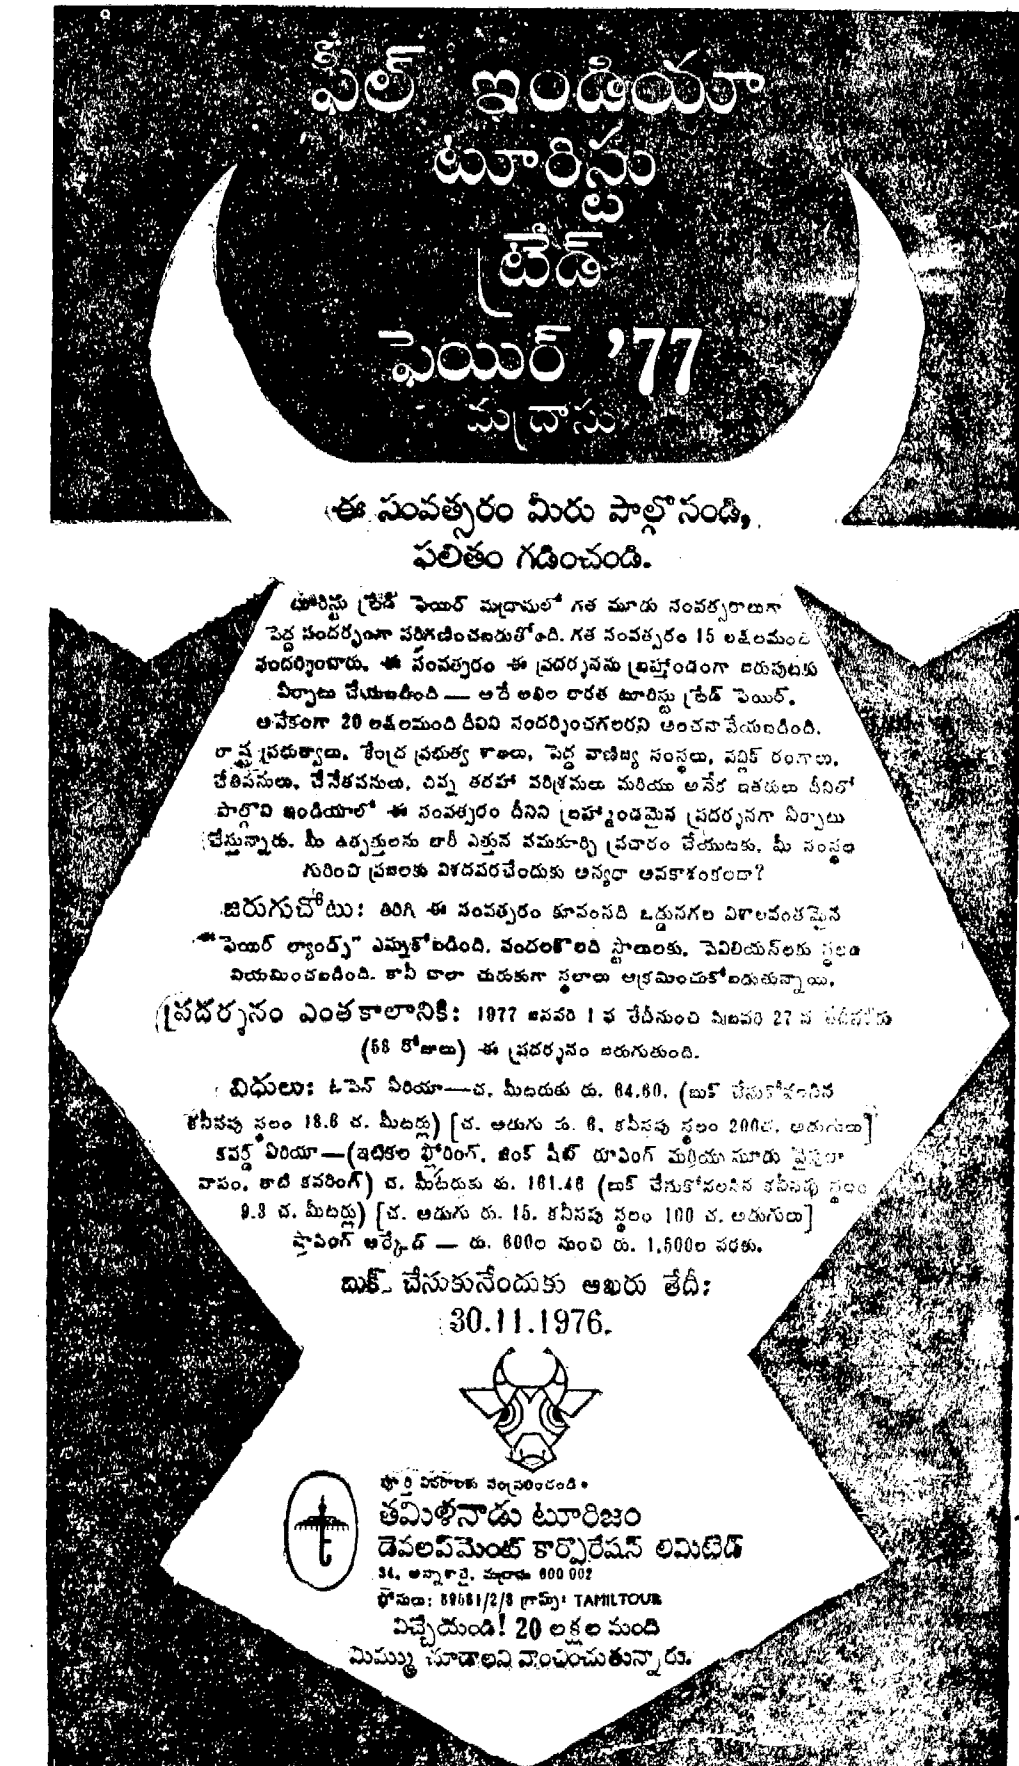 ఫీల్ ఇండియా
టూరిస్టు
ట్రేడ్
ఫెయిర్ '77
మద్రాసు
ఈ సంవత్సరం మీరు పాల్గొనండి,
ఫలితం గడించండి.
టూరిస్టు ట్రేడ్ ఫెయిర్ మద్రాసులో గత మూడు సంవత్సరాలుగా
పెద్ద సందర్భంగా పరిగణించబడుతోంది. గత సంవత్సరం 15 లక్షలమంది
సందర్శించారు. ఈ సంవత్సరం ఈ ప్రదర్శనను బ్రహ్మాండంగా జరుపుటకు
ఏర్పాటు చేయబడింది — అదే అఖిల భారత టూరిస్టు ట్రేడ్ ఫెయిర్.
అనేకంగా 20 లక్షలమంది దీనిని సందర్శించగలరని అంచనా వేయబడింది.
రాష్ట్ర ప్రభుత్వాలు, కేంద్ర ప్రభుత్వ శాఖలు, పెద్ద వాణిజ్య సంస్థలు, పబ్లిక్ రంగాలు,
చేతిపనులు, చేనేతపనులు, చిన్న తరహా పరిశ్రమలు మరియు అనేక ఇతరులు దీనిలో
పాల్గొని ఇండియాలో ఈ సంవత్సరం దీనిని బ్రహ్మాండమైన ప్రదర్శనగా ఏర్పాటు
చేస్తున్నారు. మీ ఉత్పత్తులను భారీ ఎత్తున సమకూర్చి ప్రచారం చేయుటకు, మీ సంస్థల
గురించి ప్రజలకు విశదపరచేందుకు అన్యధా అవకాశంకలదా?
జరుగుచోటు: తిరిగి ఈ సంవత్సరం కూవంనది ఒడ్డునగల విశాలవంతమైన
"ఫెయిర్ ల్యాండ్స్" ఎన్నుకోబడింది. వందలకొలది స్టాలులకు, పెవిలియన్‌లకు స్థలం
నియమించబడింది. కానీ చాలా చురుకుగా స్థలాలు ఆక్రమించుకోబడుతున్నాయి.
ప్రదర్శనం ఎంతకాలానికి: 1977 జనవరి 1 వ తేదీనుంచి ఫిబ్రవరి 27 వ తేదీవరకు
(58 రోజులు) ఈ ప్రదర్శనం జరుగుతుంది.
విధులు: ఓపెన్ ఏరియా—చ. మీటరుకు రు. 64.60. (బుక్ చేసుకోవలసిన
కనీసపు స్థలం 18.6 చ. మీటర్లు) [చ. అడుగు రు. 6. కనీసపు స్థలం 200చ. అడుగులు]
కవర్డ్ ఏరియా—(ఇటికల ఫ్లోరింగ్, జింక్ షీట్ రూఫింగ్ మరియు మూడు వైపులా
వాసం, తాటి కవరింగ్) చ. మీటరుకు రు. 161.46 (బుక్ చేసుకోవలసిన కనీసపు స్థలం
9.3 చ. మీటర్లు) [చ. అడుగు రు. 15. కనీసపు స్థలం 100 చ. అడుగులు]
షాపింగ్ ఆర్కేడ్ — రు. 600ల నుంచి రు. 1,500ల వరకు.
బుక్ చేసుకునేందుకు ఆఖరు తేదీ:
30.11.1976.
పూర్తి వివరాలకు సంప్రదించండి:
తమిళనాడు టూరిజం
డెవలప్‌మెంట్ కార్పొరేషన్ లిమిటెడ్
34, అన్నాశాలై, మద్రాసు 600 002
ఫోనులు: 89581/2/3 గ్రామ్స్: TAMILTOUR
విచ్చేయండి! 20 లక్షల మంది
మిమ్ము చూడాలని వాంఛించుతున్నారు.